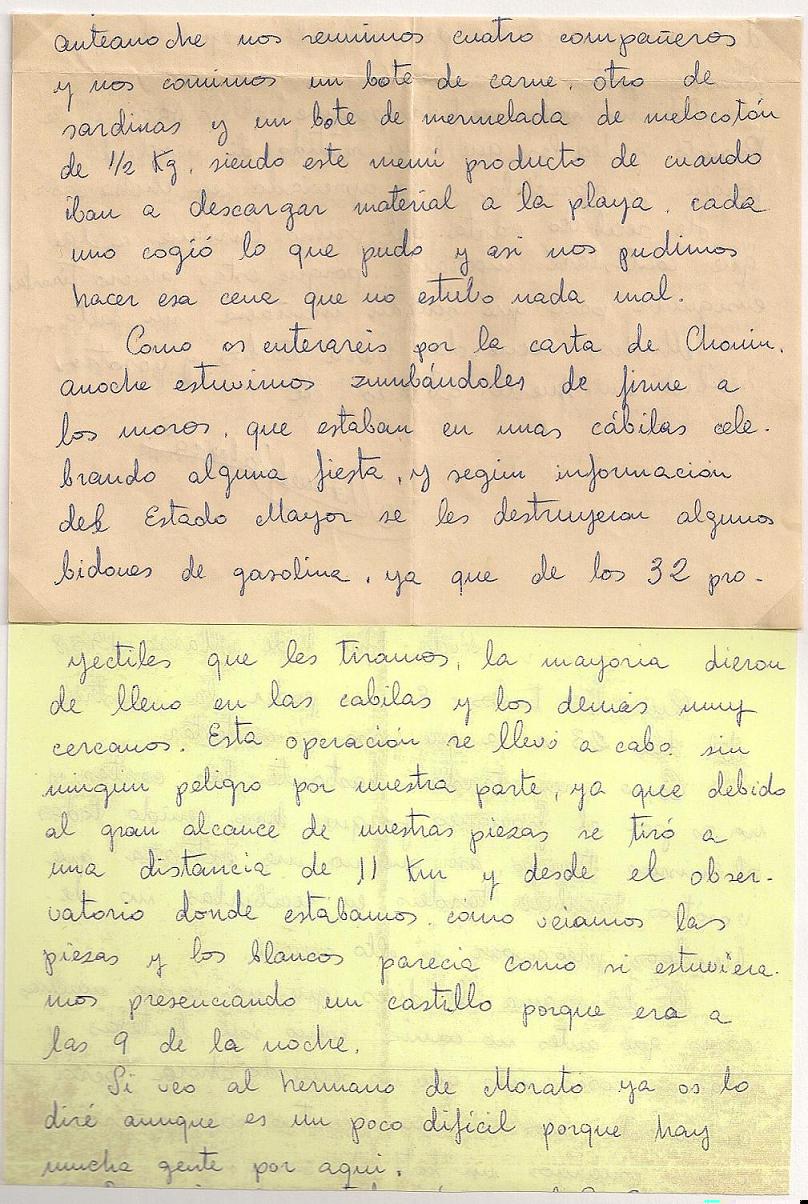 anteanoche nos reunimos cuatro compañeros
y nos comimos un bote de carne, otro de
sardinas y un bote de mermelada de melocotón
de 1/2 Kg, siendo este menú producto de cuando
iban a descargar material a la playa, cada
uno cogió lo que pudo y asi nos pudimos
hacer esa cena que no estubo nada mal.
Como os enterareis por la carta de Chonin,
anoche estuvimos zumbándoles de firme a
los moros, que estaban en unas cábilas cele-
brando alguna fiesta, y según información
del Estado Mayor se les destruyeron algunos
bidones de gasolina, ya que de los 32 pro-
yectiles que les tiramos, la mayoria dieron
de lleno en las cabilas y los demás muy
cercanos. Esta operación se llevó a cabo sin
ningun peligro por nuestra parte, ya que debido
al gran alcance de nuestras piezas se tiró a
una distancia de 11 Km y desde el obser-
vatorio donde estabamos, como veiamos las
piezas y los blancos parecia como si estuviera-
mos presenciando un castillo porque era a
las 9 de la noche.
Si veo al hermano de Morató ya os lo
diré aunque es un poco difícil porque hay
mucha gente por aqui.